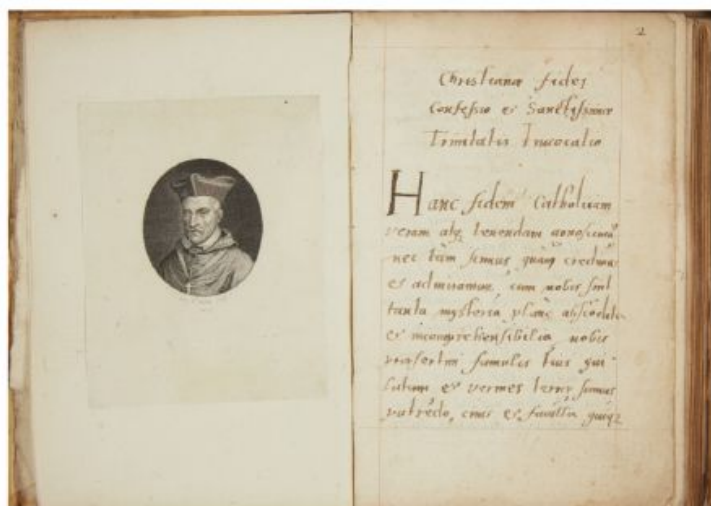 2
Christianæ fidei
Confessio et Sanctissimæ
Trinitatis Invocatio
Hanc fidem Catholicam
veram atq; tenendam
nec tam scimus quam credimus
et admiramur, cum nobis sint
tanta mysteria plane abscondita
et incomprehensibilia nobis
præsertim famulis tuis qui
lutum et vermes terræ sumus
putredo, cinis et favilla